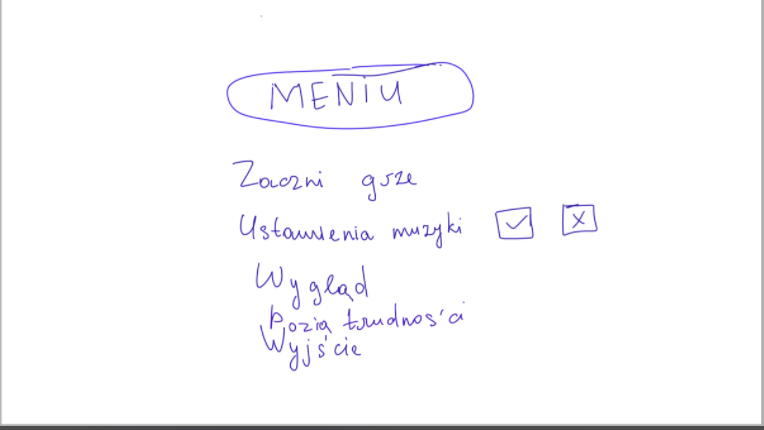 MENIU
Zaczni grze
Ustawienia muzyki
Wygląd
Pozią trudności
Wyjście